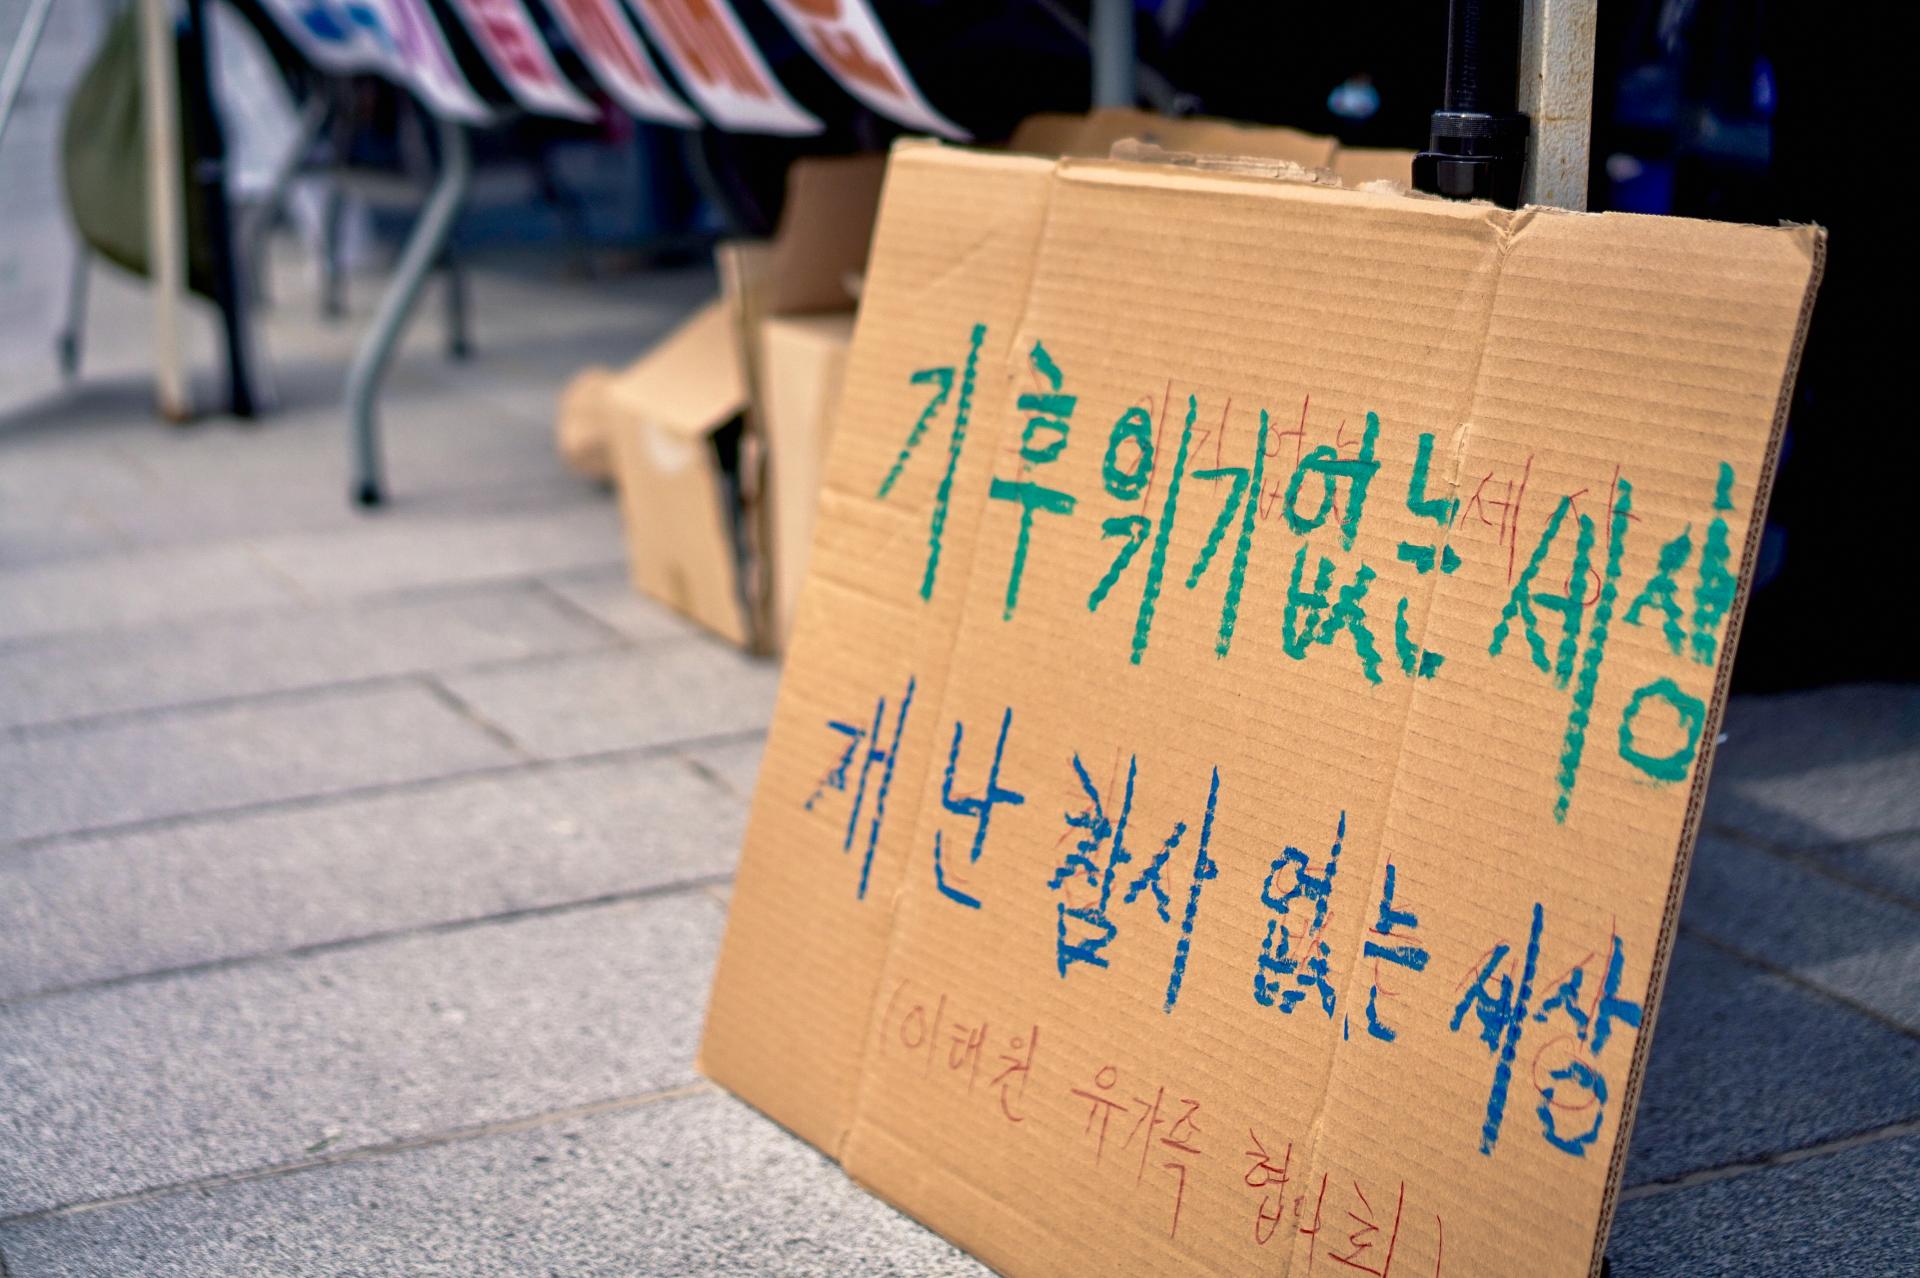 기후위기 없는 세상
재난 참사 없는 세상
(이태원 유가족 협의회)